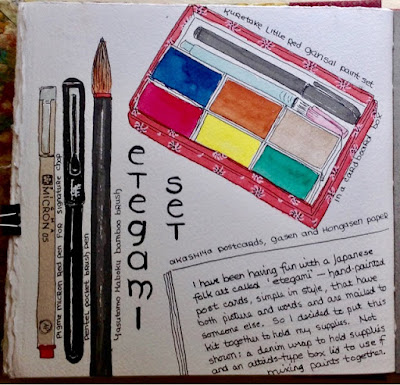 Kuretake Little Red gansai paint set
in a cardboard box
Pigma micron red pen for signature chop
MICRON 05
Pentel pocket brush pen
Yasutomo Haboku bamboo brush
etegami
set
akashiya postcards, gasen and Hongasen paper
I have been having fun with a Japanese
folk art called "etegami" – hand-painted
post cards, simple in style, that have
both picture and words and are mailed to
someone else. So I decided to put this
kit together to hold my supplies. Not
shown: a denim wrap to hold supplies
and an altoids-type box lid to use for
mixing paints together.